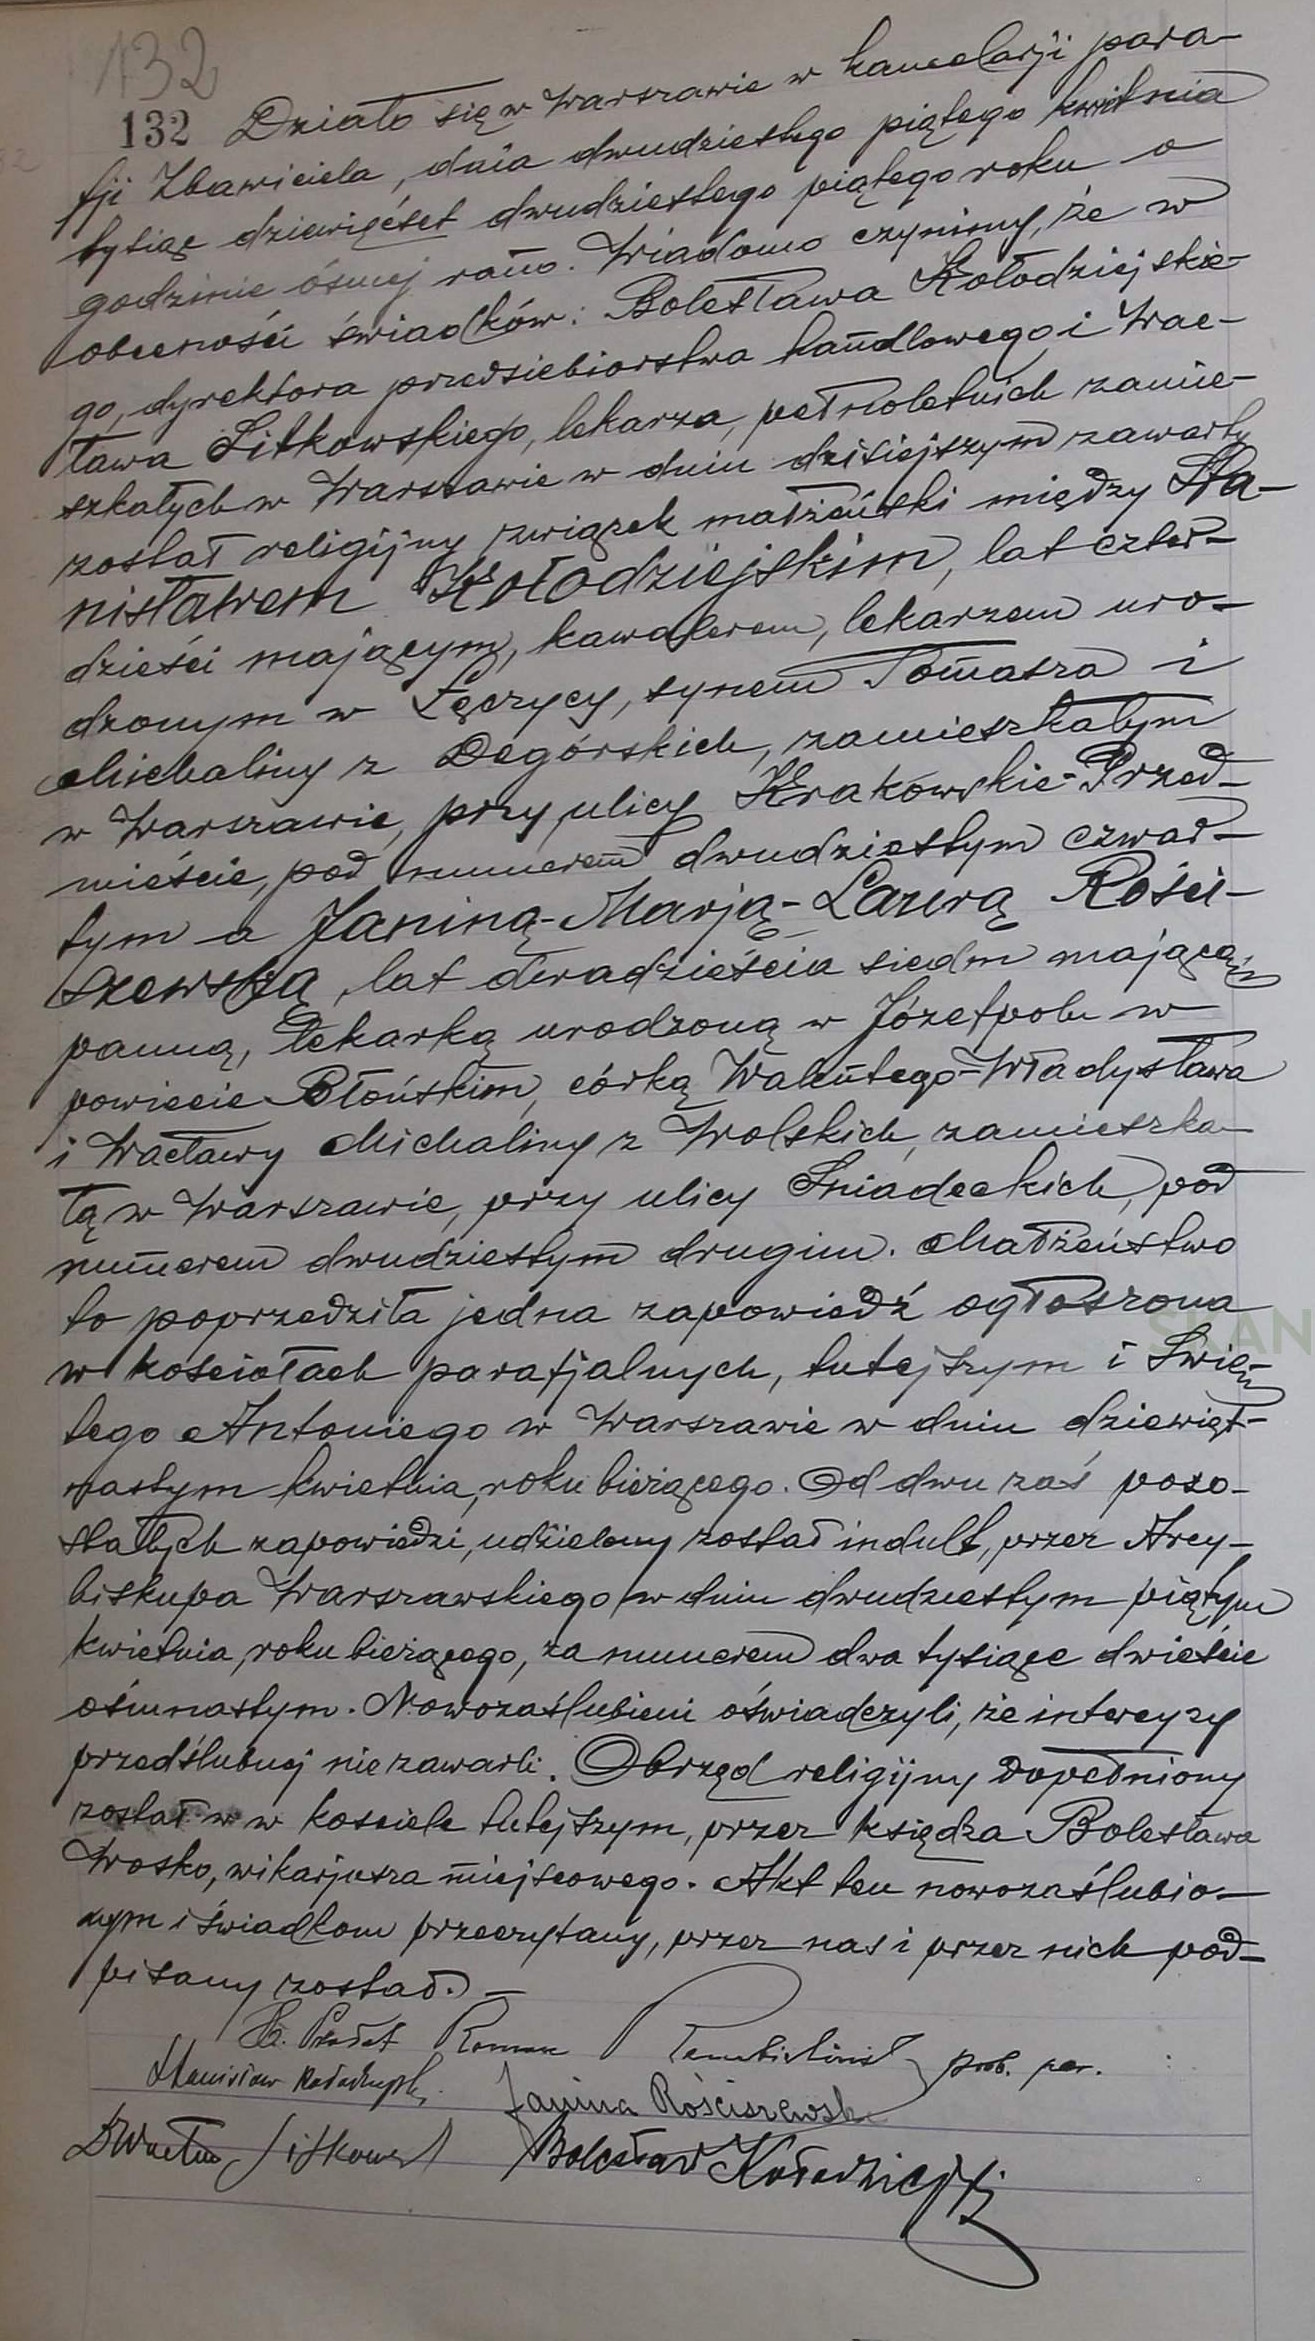 132
132 Działo się w Warszawie w kancelarji para-
fji Zbawiciela, dnia dwudziestego piątego kwietnia
tysiąc dziewięćset dwudziestego piątego roku o
godzinie ósmej rano. Wiadomo czynimy, że w
obecności świadków: Bolesława Kołodziejskie-
go, dyrektora przedsiebiorstwa handlowego i Wac-
ława Sitkowskiego, lekarza, pełnoletnich zamie-
szkałych w Warszawie w dniu dzisiejszym zawarty
został religijny związek małżeński między Sta-
nisławem Kołodziejskim, lat czter-
dzieści mającym, kawalerem, lekarzem uro-
dzonym w Łęczycy, synem Tomasza i
Michaliny z Degórskich, zamieszkałym
w Warszawie, przy ulicy Krakowskie-Przed-
mieście, pod numerem dwudziestym czwar-
tym a Janiną-Marją-Laurą Rości-
szewską, lat dwadzieścia siedm mającą,
panną, lekarką urodzoną w Józefpolu w
powiecie Błońskim, córką Walentego-Władysława
i Wacławy Michaliny z Wolskich, zamieszka-
łą w Warszawie, przy ulicy Śniadeckich, pod
numerem dwudziestym drugim. Małżeństwo
to poprzedziła jedna zapowiedź ogłoszona
w kościołach parafjalnych, tutejszym i Świę-
tego Antoniego w Warszawie w dniu dziewięt-
nastym kwietnia, roku bieżącego. Od dwu zaś pozo-
stałych zapowiedzi, udzielony został indult, przez Arcy-
biskupa Warszawskiego w dniu dwudziestym piątym
kwietnia, roku bieżącego, za numerem dwa tysiące dwieście
ośmnastym. Nowozaślubieni oświadczyli, że intercyzy
przedślubnej nie zawarli. Obrzęd religijny dopełniony
został w w kościele tutejszym, przez księdza Bolesława
Wosko, wikarjusza miejscowego. Akt ten nowozaślubio-
nym i świadkom przeczytany, przez nas i przez nich pod-
pisany został. —
Ks. Prałat Roman Rembieliński prob. par.
Stanisław Kołodziejski
Janina Rościszewska
Dr Wacław Sitkowski
Bolesław Kołodziejski
SKAN